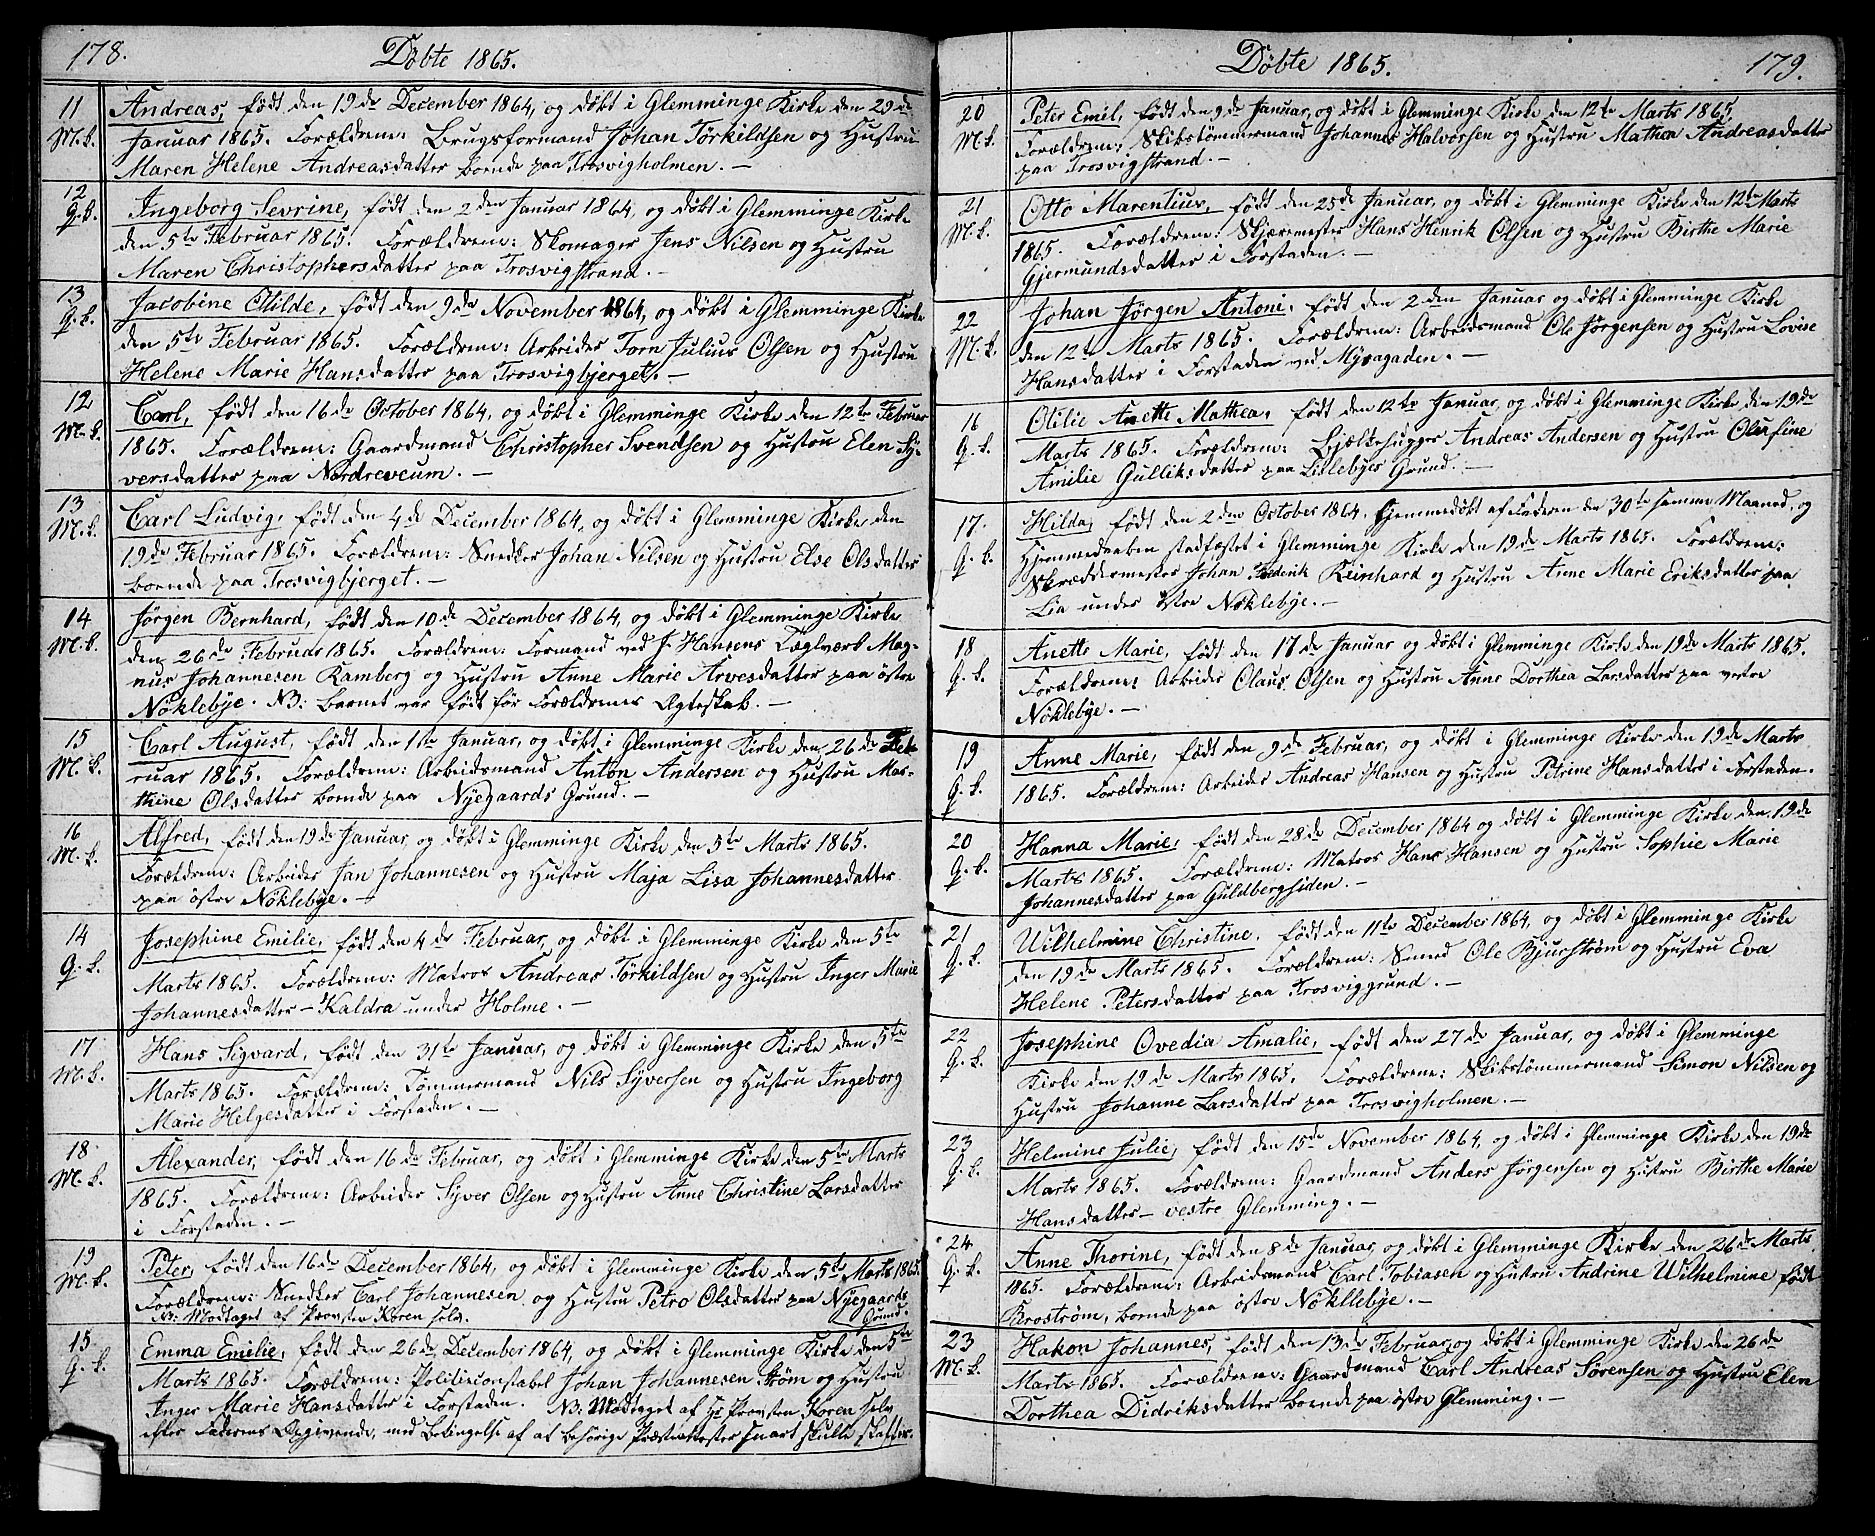 178.
Døbte 1865.
11 Andreas, født den 19de December 1864, og døbt i Glemminge Kirke den 29de
M.k. Januar 1865. Forældrene: Brugsformand Johan Törkildsen og Hustru
Maren Helene Andreasdatter boende paa Trosvigholmen. —
12 Ingeborg Sevrine, født den 2den Januar 1864, og døbt i Glemminge Kirke
Q.k. den 5te Februar 1865. Forældrene: Skomager Jens Nilsen og Hustru
Maren Christophersdatter paa Trosvigstrand. —
13 Jacobine Otilde, født den 9de November 1864, og døbt i Glemminge Kirke
Q.k. den 5te Februar 1865. Forældrene: Arbeider Torn Julius Olsen og Hustru
Helene Marie Hansdatter paa Trosvigbjerget. —
12 Carl, født den 16de October 1864, og døbt i Glemminge Kirke den 12te Februar
M.k. 1865. Forældrene: Gaardmand Christopher Svendsen og Hustru Elen Sy-
versdatter paa Nordreveum. —
13 Carl Ludvig, født den 4de December 1864, og døbt i Glemminge Kirke den
M.k. 19de Februar 1865. Forældrene: Snedker Johan Nilsen og Hustru Else Olsdatter
boende paa Trosvigbjerget. —
14 Jørgen Bernhard, født den 10de December 1864, og døbt i Glemminge Kirke
M.k. den 26de Februar 1865. Forældrene: Formand ved J. Hansens Teglværk Mag-
nus Johannesen Kamberg og Hustru Anne Marie Arvesdatter paa östre
Nöklebye. NB: Barnet var født før Forældrenes Ægteskab. —
15 Carl August, født den 1te Januar, og døbt i Glemminge Kirke den 26de Feb-
M.k. ruar 1865. Forældrene: Arbeidsmand Anton Andersen og Hustru Mar-
thine Olsdatter boende paa Nyegaards Grund. —
16 Alfred, født den 19de Januar, og døbt i Glemminge Kirke den 5te Marts 1865.
M.k. Forældrene: Arbeider Jan Johannesen og Hustru Maja Lisa Johannesdatter
paa östre Nöklebye. —
14 Josephine Emilie, født den 4de Februar, og døbt i Glemminge Kirke den 5te
Q.k. Marts 1865. Forældrene: Matros Andreas Törkildsen og Hustru Inger Marie
Johannesdatter – Kaldra under Holme. —
17 Hans Sigvard, født den 31te Januar, og døbt i Glemminge Kirke den 5te
M.k. Marts 1865. Forældrene: Tømmermand Nils Syversen og Hustru Ingeborg
Marie Helgesdatter i Forstaden. —
18 Alexander, født den 16de Februar, og døbt i Glemminge Kirke den 5te Marts
M.k. 1865. Forældrene: Arbeider Syver Olsen og Hustru Anne Christine Larsdatter
i Forstaden. —
19 Peter, født den 16de December 1864, og døbt i Glemminge Kirke den 5te Marts 1865.
M.k. Forældrene: Snedker Carl Johannesen og Hustru Petro Olsdatter paa Nyegaards
NB: Modtaget af Provsten Koren selv. Grund.
15 Emma Emilie, født den 26de December 1864, og døbt i Glemminge Kirke den 5te
Q.k. Marts 1865. Forældrene: Politiconstabel Johan Johannesen Strøm og Hustru
Inger Marie Hansdatter i Forstaden. NB: Modtaget af Hr Provsten Koren selv
efter Faderens Opgivende, med Betingelse af at behørige Præsteattester snart skulle skaffes.
179.
Døbte 1865.
20 Peter Emil, født den 9de Januar, og døbt i Glemminge Kirke den 12te Marts 1865.
M.k. Forældrene: Skibstømmermand Johannes Halvorsen og Hustru Mathea Andreasdatter
paa Trosvigstrand. —
21 Otto Marentius, født den 25de Januar, og døbt i Glemminge Kirke den 12te Marts
M.k. 1865. Forældrene: Skjærmester Hans Henrik Olsen og Hustru Birthe Marie
Gjermundsdatter i Forstaden. —
22 Johan Jörgen Antoni, født den 2den Januar og døbt i Glemminge Kirke
M.k. den 12te Marts 1865. Forældrene: Arbeidsmand Ole Jörgensen og Hustru Lovise
Hansdatter i Forstaden ved Mÿragaden. —
16 Otilie Anette Mathea, født den 12te Januar, og døbt i Glemminge Kirke den 19de
Q.k. Marts 1865. Forældrene: Bjelkehugger Andreas Andersen og Hustru Olufine
Amilie Gulliksdatter paa Lillebyes Grund. —
17. Hilda, født den 2den October 1864. Hjemmedøbt af Faderen den 30te samme Maaned, og
Q.k. Hjemmedaaben stadfæstet i Glemminge Kirke den 19de Marts 1865. Forældrene:
Skræddermester Johan Frederik Reinhard og Hustru Anne Marie Eriksdatter paa
Lia under östre Nöklebye. —
18 Anette Marie, født den 17de Januar og døbt i Glemminge Kirke den 19de Marts 1865.
Q.k. Forældrene: Arbeider Olaus Olsen og Hustru Anne Dorthea Larsdatter paa vestre
Nöklebye. —
19 Anne Marie, født den 9de Februar, og døbt i Glemminge Kirke den 19de Marts
Q.k. 1865. Forældrene: Arbeider Andreas Hansen og Hustru Petrine Hansdatter i Forstaden.
20 Hanna Marie, født den 28de December 1864 og døbt i Glemminge Kirke den 19de
Q.k. Marts 1865. Forældrene: Matros Hans Hansen og Hustru Sophie Marie
Johannesdatter paa Guldbergsiden. —
21 Wilhelmine Christine, født den 11te December 1864, og døbt i Glemminge Kirke
Q.k. den 19de Marts 1865. Forældrene: Smed Ole Bjurström og Hustru Eva
Helene Petersdatter paa Trosviggrund. —
22 Josephine Ovedia Amalie, født den 27de Januar, og døbt i Glemminge
Q.k. Kirke den 19de Marts 1865. Forældrene: Skibstømmermand Simon Nilsen og
Hustru Johanne Larsdatter paa Trosvigholmen. —
23 Helmine Julie, født den 15de November 1864, og døbt i Glemminge Kirke den 19de
Q.k. Marts 1865. Forældrene: Gaardmand Anders Jörgensen og Hustru Birthe Marie
Hansdatter – vestre Glemming. —
24 Anne Thorine, født den 8de Januar, og døbt i Glemminge Kirke den 26de Marts
Q.k. 1865. Forældrene: Arbeidsmand Carl Tobiasen og Hustru Andrine Wilhelmine født
Broström, boende paa östre Nökllebye. —
23 Hakon Johannes, født den 13de Februar, og døbt i Glemminge Kirke den 26de
M.k. Marts 1865. Forældrene: Gaardmand Carl Andreas Sörensen og Hustru Elen
Dorthea Didriksdatter boende paa östre Glemming. —